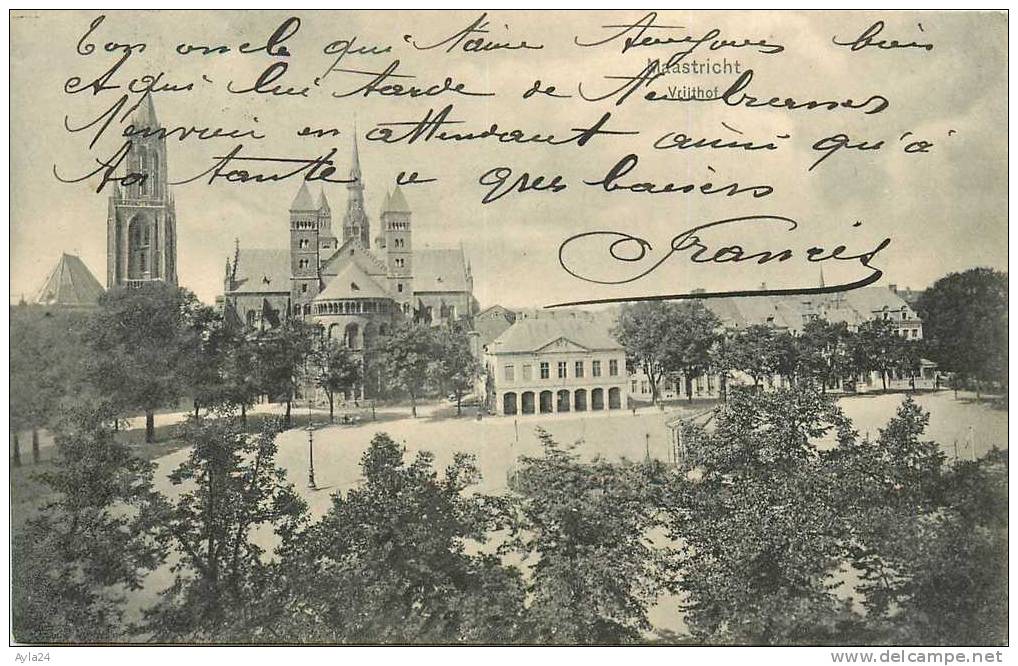 Ton oncle qui t'aime toujours bien
et qui lui tarde de t'embrasser
Maastricht
Vrijthof
Reçois en attendant ainsi qu'à
ta tante gros baisers
Francis
Ayla24
www.delcampe.net